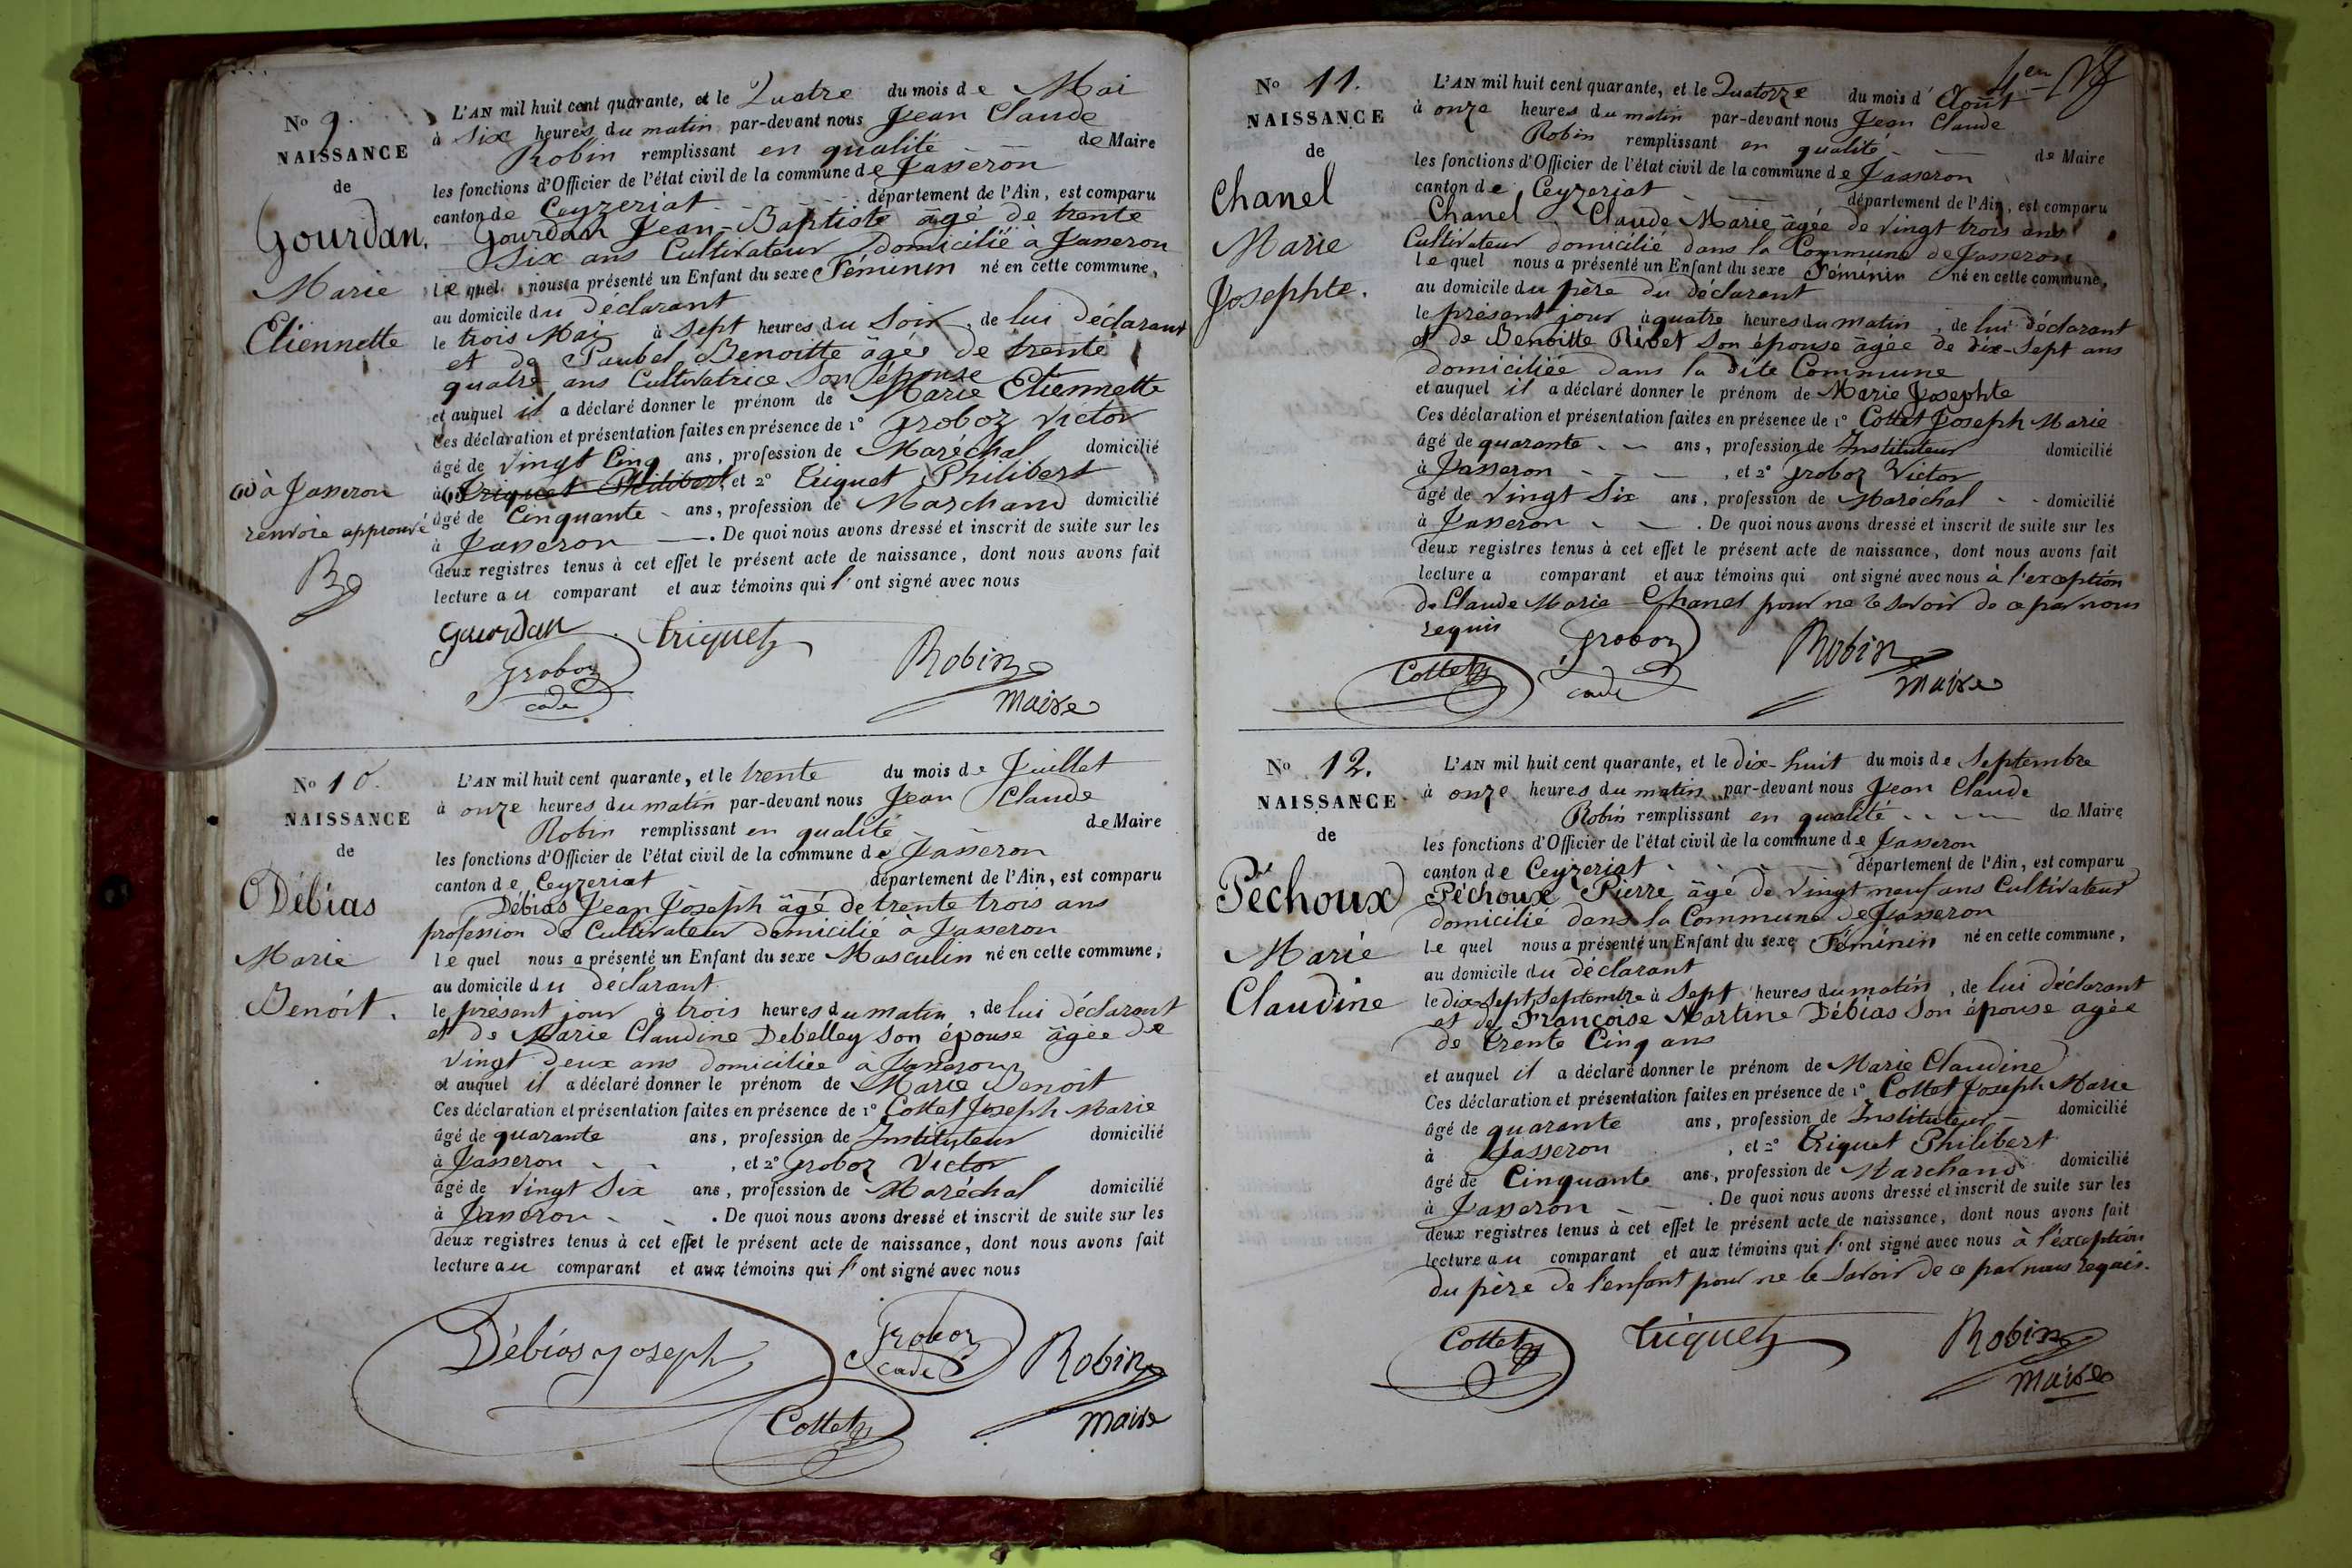 No 9.
NAISSANCE
de
Gourdan,
Marie
Etiennette
L'AN mil huit cent quarante, et le Quatre du mois de Mai
à six heures du matin par-devant nous Jean Claude
Robin remplissant en qualité de Maire
les fonctions d'Officier de l'état civil de la commune de Jasseron
canton de Ceyzeriat département de l'Ain, est comparu
Gourdan Jean-Baptiste âgé de trente
Six ans Cultivateur domicilié à Jasseron
le quel nous a présenté un Enfant du sexe Féminin né en cette commune,
au domicile du déclarant
le trois Mai à Sept heures du Soir, de lui déclarant
et de Paubel Benoitte âgée de trente
quatre ans Cultivatrice Son épouse
et auquel il a déclaré donner le prénom de Marie Etiennette
Ces déclaration et présentation faites en présence de 1° Groboz Victor
âgé de vingt Cinq ans, profession de Maréchal domicilié
à (1) Triquet Philibert, et 2° Triquet Philibert
âgé de Cinquante ans, profession de Marchand domicilié
à Jasseron. De quoi nous avons dressé et inscrit de suite sur les
deux registres tenus à cet effet le présent acte de naissance, dont nous avons fait
lecture au comparant et aux témoins qui l'ont signé avec nous
(1) à Jasseron
renvoie approuvé
Gourdan Triquet
Groboz Robin
cade Maire
No 10.
NAISSANCE
de
Débias
Marie
Benoit.
L'AN mil huit cent quarante, et le trente du mois de Juillet
à onze heures du matin par-devant nous Jean Claude
Robin remplissant en qualité de Maire
les fonctions d'Officier de l'état civil de la commune de Jasseron
canton de Ceyzeriat département de l'Ain, est comparu
Débias Jean Joseph âgé de trente trois ans
profession de Cultivateur domicilié à Jasseron
le quel nous a présenté un Enfant du sexe Masculin né en cette commune,
au domicile du déclarant
le présent jour à trois heures du matin, de lui déclarant
et de Marie Claudine Debelley son épouse âgée de
vingt deux ans domiciliée à Jasseron
et auquel il a déclaré donner le prénom de Marie Benoit
Ces déclaration et présentation faites en présence de 1° Cottet Joseph Marie
âgé de quarante ans, profession de Instituteur domicilié
à Jasseron, et 2° Groboz Victor
âgé de vingt Six ans, profession de Maréchal domicilié
à Jasseron. De quoi nous avons dressé et inscrit de suite sur les
deux registres tenus à cet effet le présent acte de naissance, dont nous avons fait
lecture au comparant et aux témoins qui l'ont signé avec nous
Débias joseph Groboz
cade Robin
Cottet Maire
No 11.
NAISSANCE
de
Chanel
Marie
Josephte.
L'AN mil huit cent quarante, et le Quatorze du mois d'Août
à onze heures du matin par-devant nous Jean Claude
Robin remplissant en qualité de Maire
les fonctions d'Officier de l'état civil de la commune de Jasseron
canton de Ceyzeriat département de l'Ain, est comparu
Chanel Claude Marie âgée de vingt trois ans
Cultivateur domicilié dans la Commune de Jasseron
le quel nous a présenté un Enfant du sexe Féminin né en cette commune,
au domicile du père du déclarant
le présent jour à quatre heures du matin, de lui déclarant
et de Benoitte Rivet son épouse âgée de dix-Sept ans
domiciliée dans la dite Commune
et auquel il a déclaré donner le prénom de Marie Josephte
Ces déclaration et présentation faites en présence de 1° Cottet Joseph Marie
âgé de quarante ans, profession de Instituteur domicilié
à Jasseron, et 2° Groboz Victor
âgé de vingt Six ans, profession de Maréchal domicilié
à Jasseron. De quoi nous avons dressé et inscrit de suite sur les
deux registres tenus à cet effet le présent acte de naissance, dont nous avons fait
lecture a comparant et aux témoins qui ont signé avec nous à l'exception
de Claude Marie Chanel pour ne le savoir de ce par nous
requis
Cottet Groboz Robin
cade Maire
No 12.
NAISSANCE
de
Péchoux
Marie
Claudine
L'AN mil huit cent quarante, et le dix-huit du mois de Septembre
à onze heures du matin par-devant nous Jean Claude
Robin remplissant en qualité de Maire
les fonctions d'Officier de l'état civil de la commune de Jasseron
canton de Ceyzeriat département de l'Ain, est comparu
Péchoux Pierre âgé de vingt neuf ans Cultivateur
domicilié dans la Commune de Jasseron
le quel nous a présenté un Enfant du sexe Féminin né en cette commune,
au domicile du déclarant
le dix-Sept Septembre à Sept heures du matin, de lui déclarant
et de Françoise Martine Débias Son épouse agée
de trente Cinq ans
et auquel il a déclaré donner le prénom de Marie Claudine
Ces déclaration et présentation faites en présence de 1° Cottet Joseph Marie
âgé de quarante ans, profession de Instituteur domicilié
à Jasseron, et 2° Triquet Philibert
âgé de Cinquante ans, profession de Marchand domicilié
à Jasseron. De quoi nous avons dressé et inscrit de suite sur les
deux registres tenus à cet effet le présent acte de naissance, dont nous avons fait
lecture au comparant et aux témoins qui l'ont signé avec nous à l'exception
du père de l'enfant pour ne le savoir de ce par nous requis.
Cottet Triquet Robin
Maire